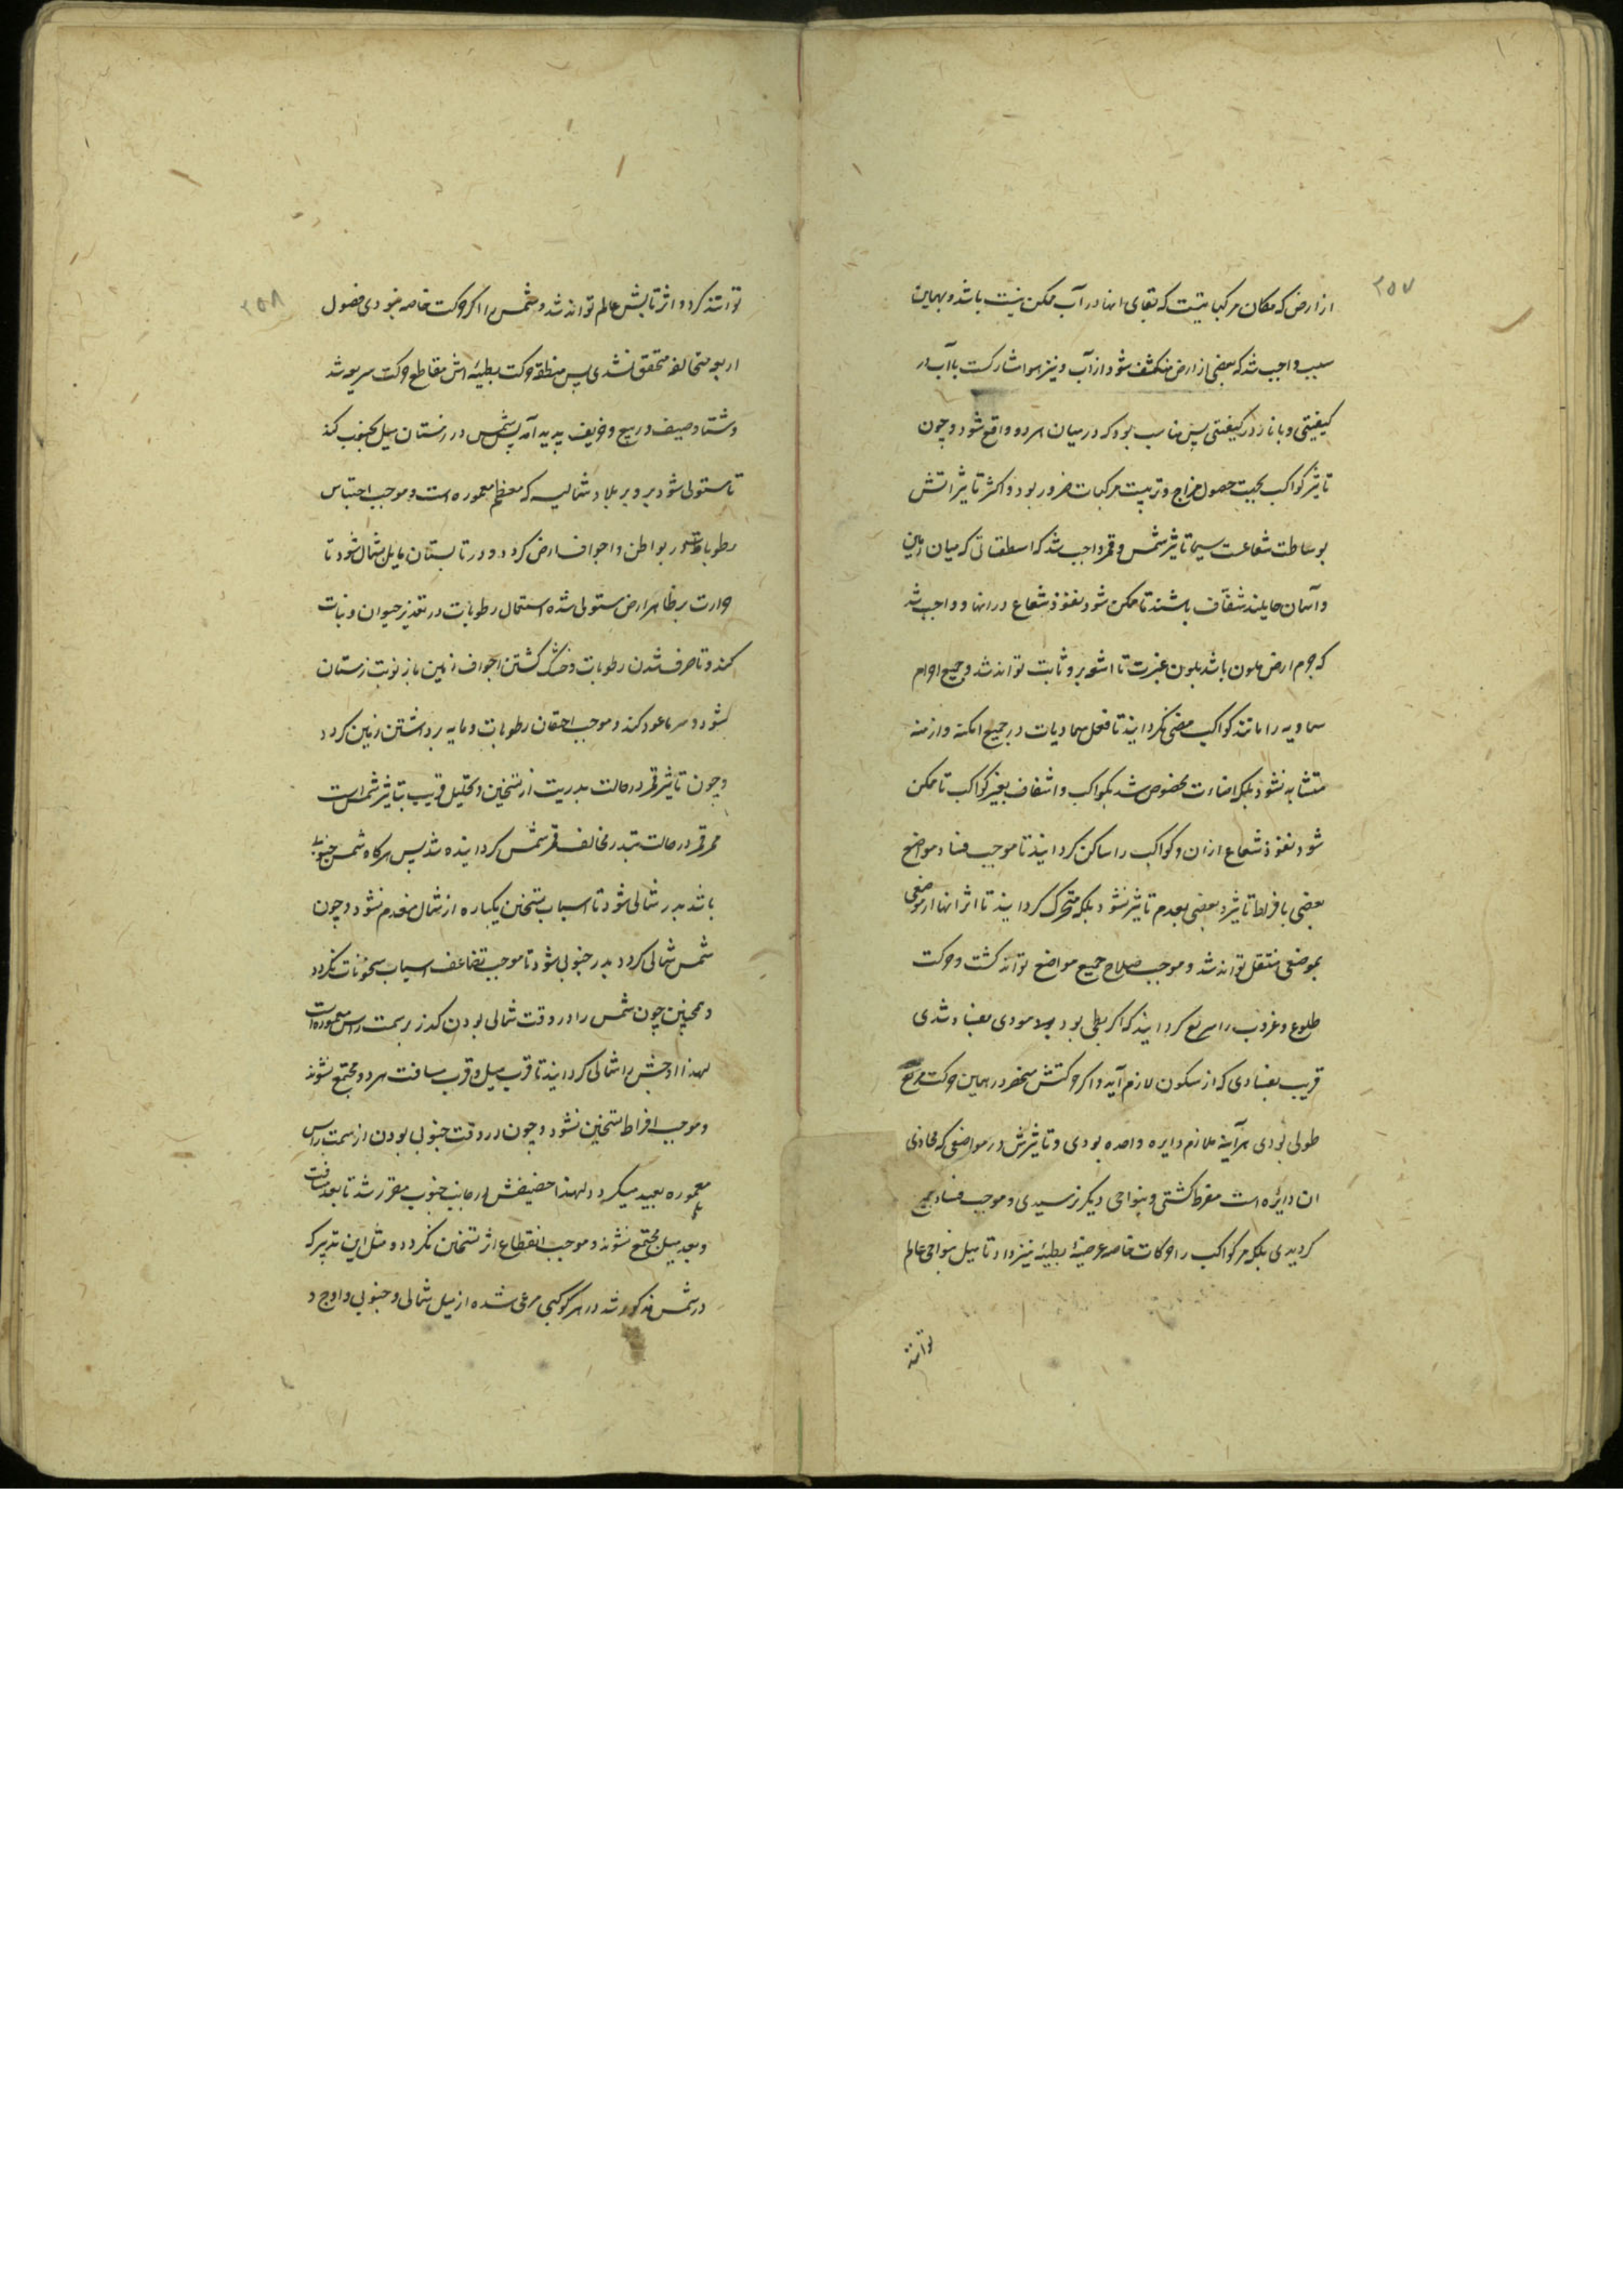 ۲۵۷
از ارض که مکان مرکباتیست که بقای انها در آب ممکن نیست باشد و بهمین
سبب واجب شد که بعضی از ارض منکشف شود از آب و نیز هوا مشارکست با آب در
کیفیتی و با نار در کیفیتی پس مناسب بود که در میان هر دو واقع شود و چون
تاثیر کواکب بجهت حصول مزاج و تربیت مرکبات ضرور بود و اکثر تاثیراتش
بوساطت شعاعست سیما تاثیر شمس و قمر واجب شد که اسطقساتی که میان زمین
و آسمان حایلند شفّاف باشند تا ممکن شود نفوذ شعاع در انها و واجب شد
که جرم ارض ملون باشد بلون غبرت تا اشعه برو ثابت تواند شد و جمیع اجرام
سماویه را مانند کواکب مضی نکردانید تا فعل سماویات در جمیع امکنه و ازمنه
متشابه نشود بلکه اضاءت مخصوص شد بکواکب و اشفاف بغیر کواکب تا ممکن
شود نفوذ شعاع ازان و کواکب را ساکن نکردانید تا موجب فساد مواضع
بعضی بافراط تاثیر و بعضی بعدم تاثیر نشود بلکه متحرک کردانید تا اثر انها از موضعی
بموضعی منتقل تواند شد و موجب صلاح جمیع مواضع تواند کشت و حرکت
طلوع و غروب را سریع کردانید که اکر بطی بود مودی بفساد شدی
قریب بفسادی که از سکون لازم آید و اکر حرکتش منحصر در همین حرکت سریع
طولی بودی هرآینه ملازم دایره واحده بودی و تاثیرش در مواضعی که محاذی
ان دایره است مفرط کشتی و بنواحی دیکر نرسیدی و موجب فساد جمیع
کردیدی بلکه مر کواکب را حرکات خاصه عرضیهٔ بطیئه نیز داد تا میل بنواحی عالم
توانند
۲۵۸
توانند کرد و اثر تابش عالم تواند شد و شمس را اکر حرکت خاصه نبودی فصول
اربعه متخالفه متحقق نشدی پس منطقه حرکت بطیئه اش مقاطع حرکت سریعه شد
و شتا و صیف و ربیع و خریف پدید آمد پس شمس در زمستان میل بجنوب کند
تا مستولی شود برد بر بلاد شمالیه که معظم معموره است و موجب احتباس
رطوبات در بواطن و اجواف ارض کردد و در تابستان مایل بشمال شود تا
حرارت بر ظاهر ارض مستولی شده استعمال رطوبات در تغذیر حیوان و نبات
کند و تا صرف شدن رطوبات و خشک کشتن اجواف زمین باز نوبت زمستان
شود و سرما عود کند و موجب احتقان رطوبات و مایه برداشتن زمین کردد
و چون تاثیر قمر در حالت بدریت از تسخین و تحلیل قریب بتاثیر شمس است
ممر قمر در حالت تبدر مخالف ممر شمس کردانیده شد پس هرکاه شمس جنوبی
باشد بدر شمالی شود تا اسباب تسخین یکباره از شمال منعدم نشود و چون
شمس شمالی کردد بدر جنوبی شود تا موجب تضاعف اسباب سخونات نکردد
و همچنین چون شمس را در وقت شمالی بودن کذر بر سمت راس معموره است
لهذا اوجش را شمالی کردانید تا قرب میل و قرب مسافت هر دو مجتمع نشوند
و موجب افراط تسخین نشود و چون در وقت جنوبی بودن از سمت راس
معموره بعید میکردد لهذا حضیضش در جانب جنوب مقرر شد تا بعد مسافت
و بعد میل مجتمع نشوند و موجب انقطاع اثر تسخین نکردد و مثل این تدبیر که
در شمس مذکور شد در هر کوکبی مرعی شده از میل شمالی و جنوبی و اوج و